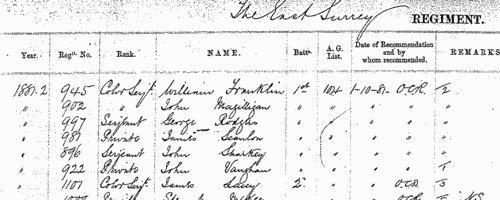 The East Surrey REGIMENT.
Year. Regtl. No. Rank. NAME. Battn. A. G. List. Date of Recommendation and by whom recommended. REMARKS
1881-2 945 Color Serjt. William Franklin 1st 104 1-10-81 O.C.R. 2
" 902 " John Magilligan " " " " "
" 997 Serjeant George Rodgers " " " " "
" 987 Private James Scanlon " " " " "
" 896 Serjeant John Sharkey " " " " "
" 922 Private John Vaughan " " " "
" 1101 Color Serjt. James Lacey 2 " " O.C.R.